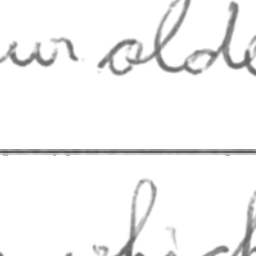 ur olde
which